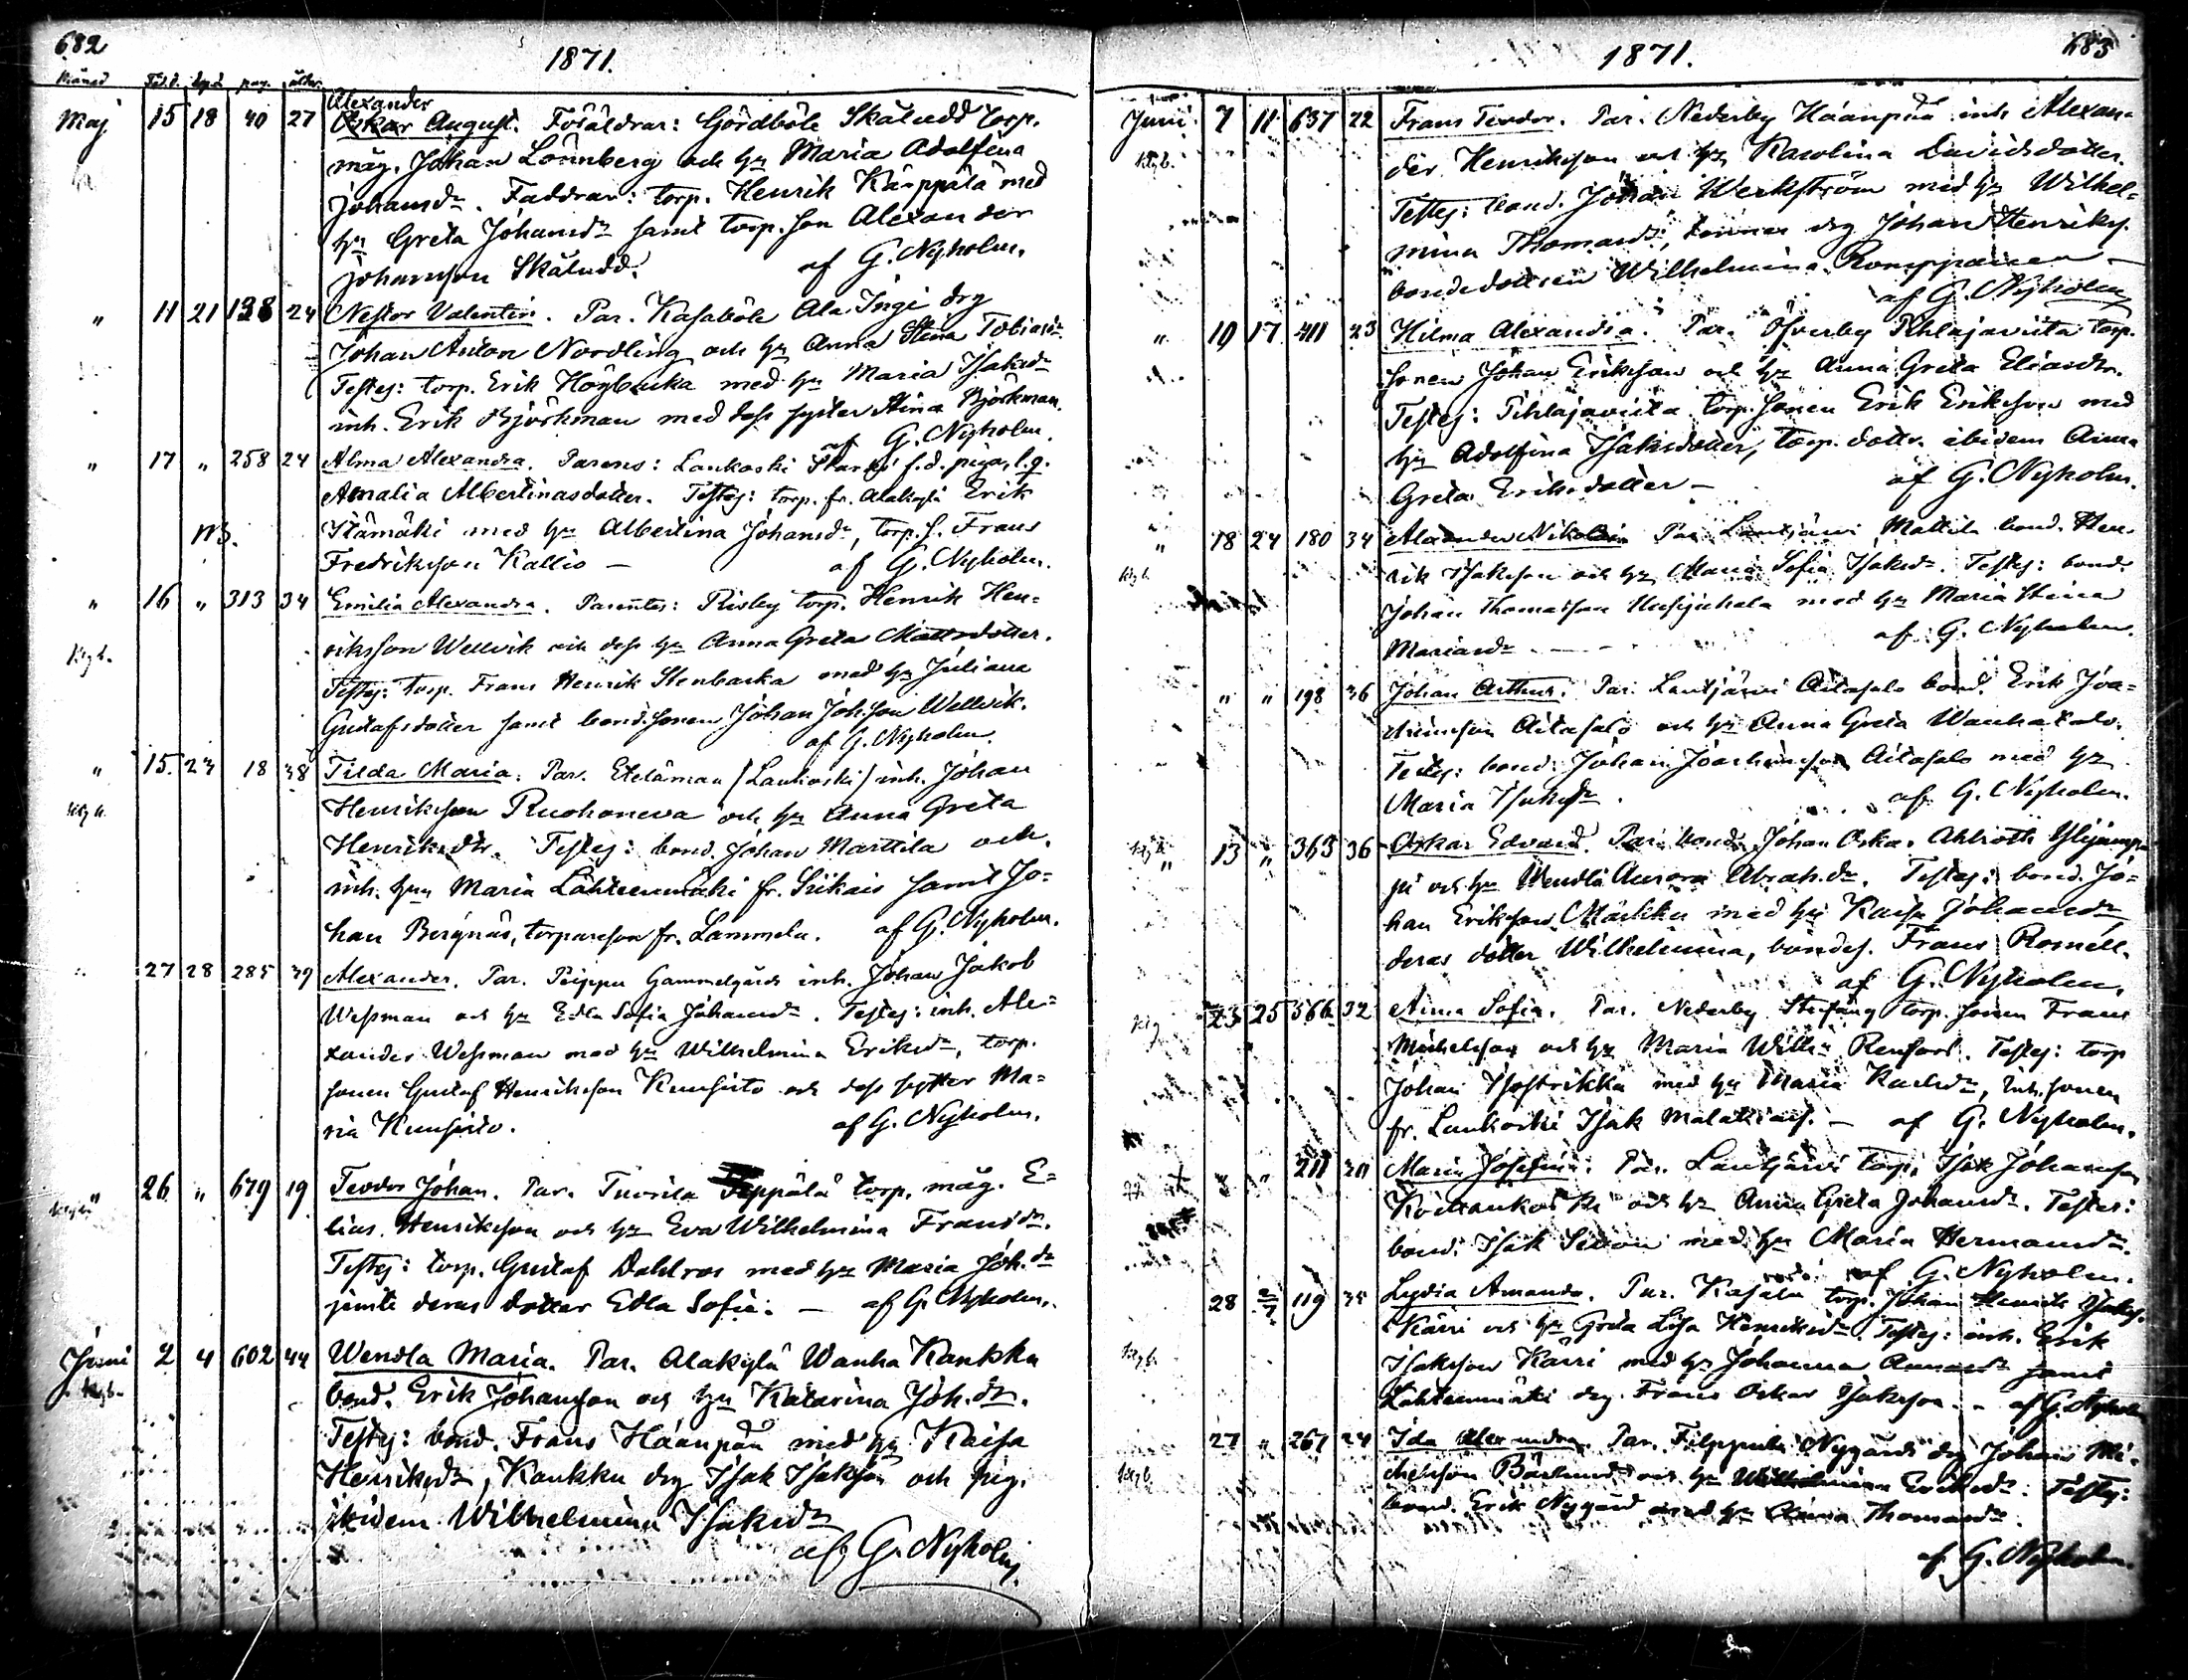 682
1871.
Månad Föd.d. döpt pag. ålder
Alexander
Maj 15 18 40 27 Oskar August. Föräldrar: Gördböle Skäludd torp.
måg. Johan Lönnberg och hu Maria Adolfina
Johansdr. Faddrar: torp. Henrik Kärppälä med
hu Greta Johansdr samt torp. son Alexander
Johansson Skäludd. af G. Nyholm.
" 11 21 138 24 Nestor Valentin. Par. Kasaböle Ala Ingi drg
Johan Anton Nordling och hu Anna Stina Tobiasdr
Testes: torp. Erik Högbacka med hu Maria Isaksdr
inh. Erik Björkman med dess syster Stina Björkman.
af G. Nyholm.
" 17 " 258 24 Alma Alexandra. Parens: Lankoski f.d. piga, l.q.
Amalia Albertinasdotter. Testes: torp. fr. Alakylä Erik
NB. Itämäki med hu Albertina Johansdr, torp. s. Frans
Fredriksson Kallio — af G. Nyholm.
" 16 " 313 34 Emilia Alexandra. Parentes: Risby torp. Henrik Hen-
Kgb. riksson Wellvik och dess hu Anna Greta Mattsdotter.
Testes: torp. Frans Henrik Stenbacka med hu Juliana
Gustafsdotter samt bond. sonen Johan Joh.son Wellvik.
af G. Nyholm.
" 15. 23 18 38 Tilda Maria. Par. Etelämaa (Lankoski) inh. Johan
Henriksson Ruohoneva och hu Anna Greta
Henriksdtr. Testes: bond. Johan Marttila och
inh. hu Maria Lähteenmäki fr. Siikais samt Jo-
han Bergnäs, torpareson fr. Lammela. af G. Nyholm.
" 27 28 285 39 Alexander. Par. Peippu Gammelgårds inh. Johan Jakob
Wessman och hu Edla Sofia Johansdr. Testes: inh. Ale-
xander Wessman med hu Wilhelmina Eriksdr, torp.
sonen Gustaf Henriksson Kuusisto och dess syster Ma-
ria Kuusisto. af G. Nyholm.
" 26 " 679 19 Teodor Johan. Par. Tuorila Seppälä torp. måg. E-
lias Henriksson och hu Eva Wilhelmina Fransdr.
Testes: torp. Gustaf Dahlros med hu Maria Joh.dr
jemte deras dotter Edla Sofia. — af G. Nyholm.
Juni 2 4 602 44 Wendla Maria. Par. Alakylä Wanha Kankku
Kgb. bond. Erik Johansson och hu Katarina Joh.dr.
Testes: bond. Frans Haanpää med hu Kaisa
Henriksdr, Kankku drg Isak Isaksson och pig.
ibidem Wilhelmina Isaksdr
af G. Nyholm.
1871. 683
Juni 7 11 637 22 Frans Teodor. Par. Nederby Haanpää inh Alexan-
Kgb. der Henriksson och hu Karolina Davidsdotter.
Testes: bond. Johan Werkström med hu Wilhel-
mina Thomasdr, drg Johan Henriks.
bondedottren Wilhelmina Romppainen —
af G. Nyholm
" 10 17 411 23 Hilma Alexandra. Par. Öfverby Pihlajaviita torp.
sonen Johan Eriksson och hu Anna Greta Eliasdtr.
Testes: Pihlajaviita torp. sonen Erik Eriksson med
hu Adolfina Isaksdotter, torp. dottr. ibidem Anna
Greta Eriksdotter — af G. Nyholm.
" 18 24 180 34 Alexander Nikolai Par. Lautjärvi Mattila bond. Hen-
Kgb. rik Isaksson och hu Maria Sofia Isaksdr. Testes: bond.
Johan Thomasson med hu Maria Stina
Mariasdr — af G. Nyholm.
" " 198 36 Johan Arthur. Par. Lautjärvi Aitasalo bond. Erik Joa-
kimsson Aitasalo och hu Anna Greta Wanhatalo.
Testes: bond. Johan Joachimsson Aitasalo med hu
Maria Isaksdr. af G. Nyholm.
" 13 " 363 36 Oskar Edvard. Par. bond. Johan Oskar Ahlroth
och hu Wendla Aurora Abrah.dr. Testes: bond. Jo-
han Eriksson Markku med hu Kaisa Johansdr
deras dotter Wilhelmina, bondes. Frans Roméll.
af G. Nyholm.
23 25 566 32 Anna Sofia. Par. Nederby Stufäng torp. sonen Frans
Michelsson och hu Maria Wilh:a Renfors. Testes: torp
Johan Isostrikka med hu Maria Karlsdr, inh. sonen
fr. Lankoski Isak Malakias. — af G. Nyholm.
" 211 Maria Josefina. Par. Lautjärvi torp. Isak Johansson
Koivukoski och hu Anna Greta Johansdr. Testes:
bond. Isak Sevon med hu Maria Hermansdr.
af G. Nyholm.
28 2/7 119 35 Lydia Amanda. Par. Kasala torp. Johan Henrik Isaks.
Kgb. Kärri och hu Greta Lisa Henriksdr. Testes: inh. Erik
Isaksson Kärri med hu Johanna Annasdr samt
Lähteenmäki drg. Frans Oskar Isaksson. - af G. Nyholm
27 " 267 24 Ida Alexandra. Par. Filppula Nygårds drg Johan Mi-
Kgb. chelsson Bärlund och hu Wilhelmina Eriksdr. Testes:
bond. Erik Nygård med hu Anna Thomasdr.
af G. Nyholm.